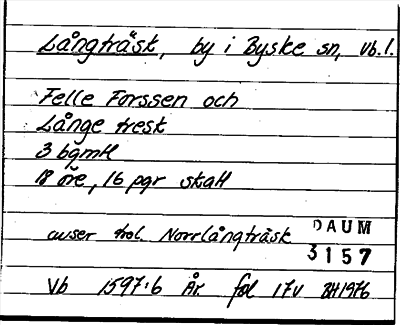 Långträsk, by i Byske sn, vb.l.
Felle Forssen och
Långe tresk
3 bgmtl
18 öre, 16 pgr skatt
avser trol. Norrlångträsk
DAUM
3157
Vb 1597:6 År. fol 17v BH1976